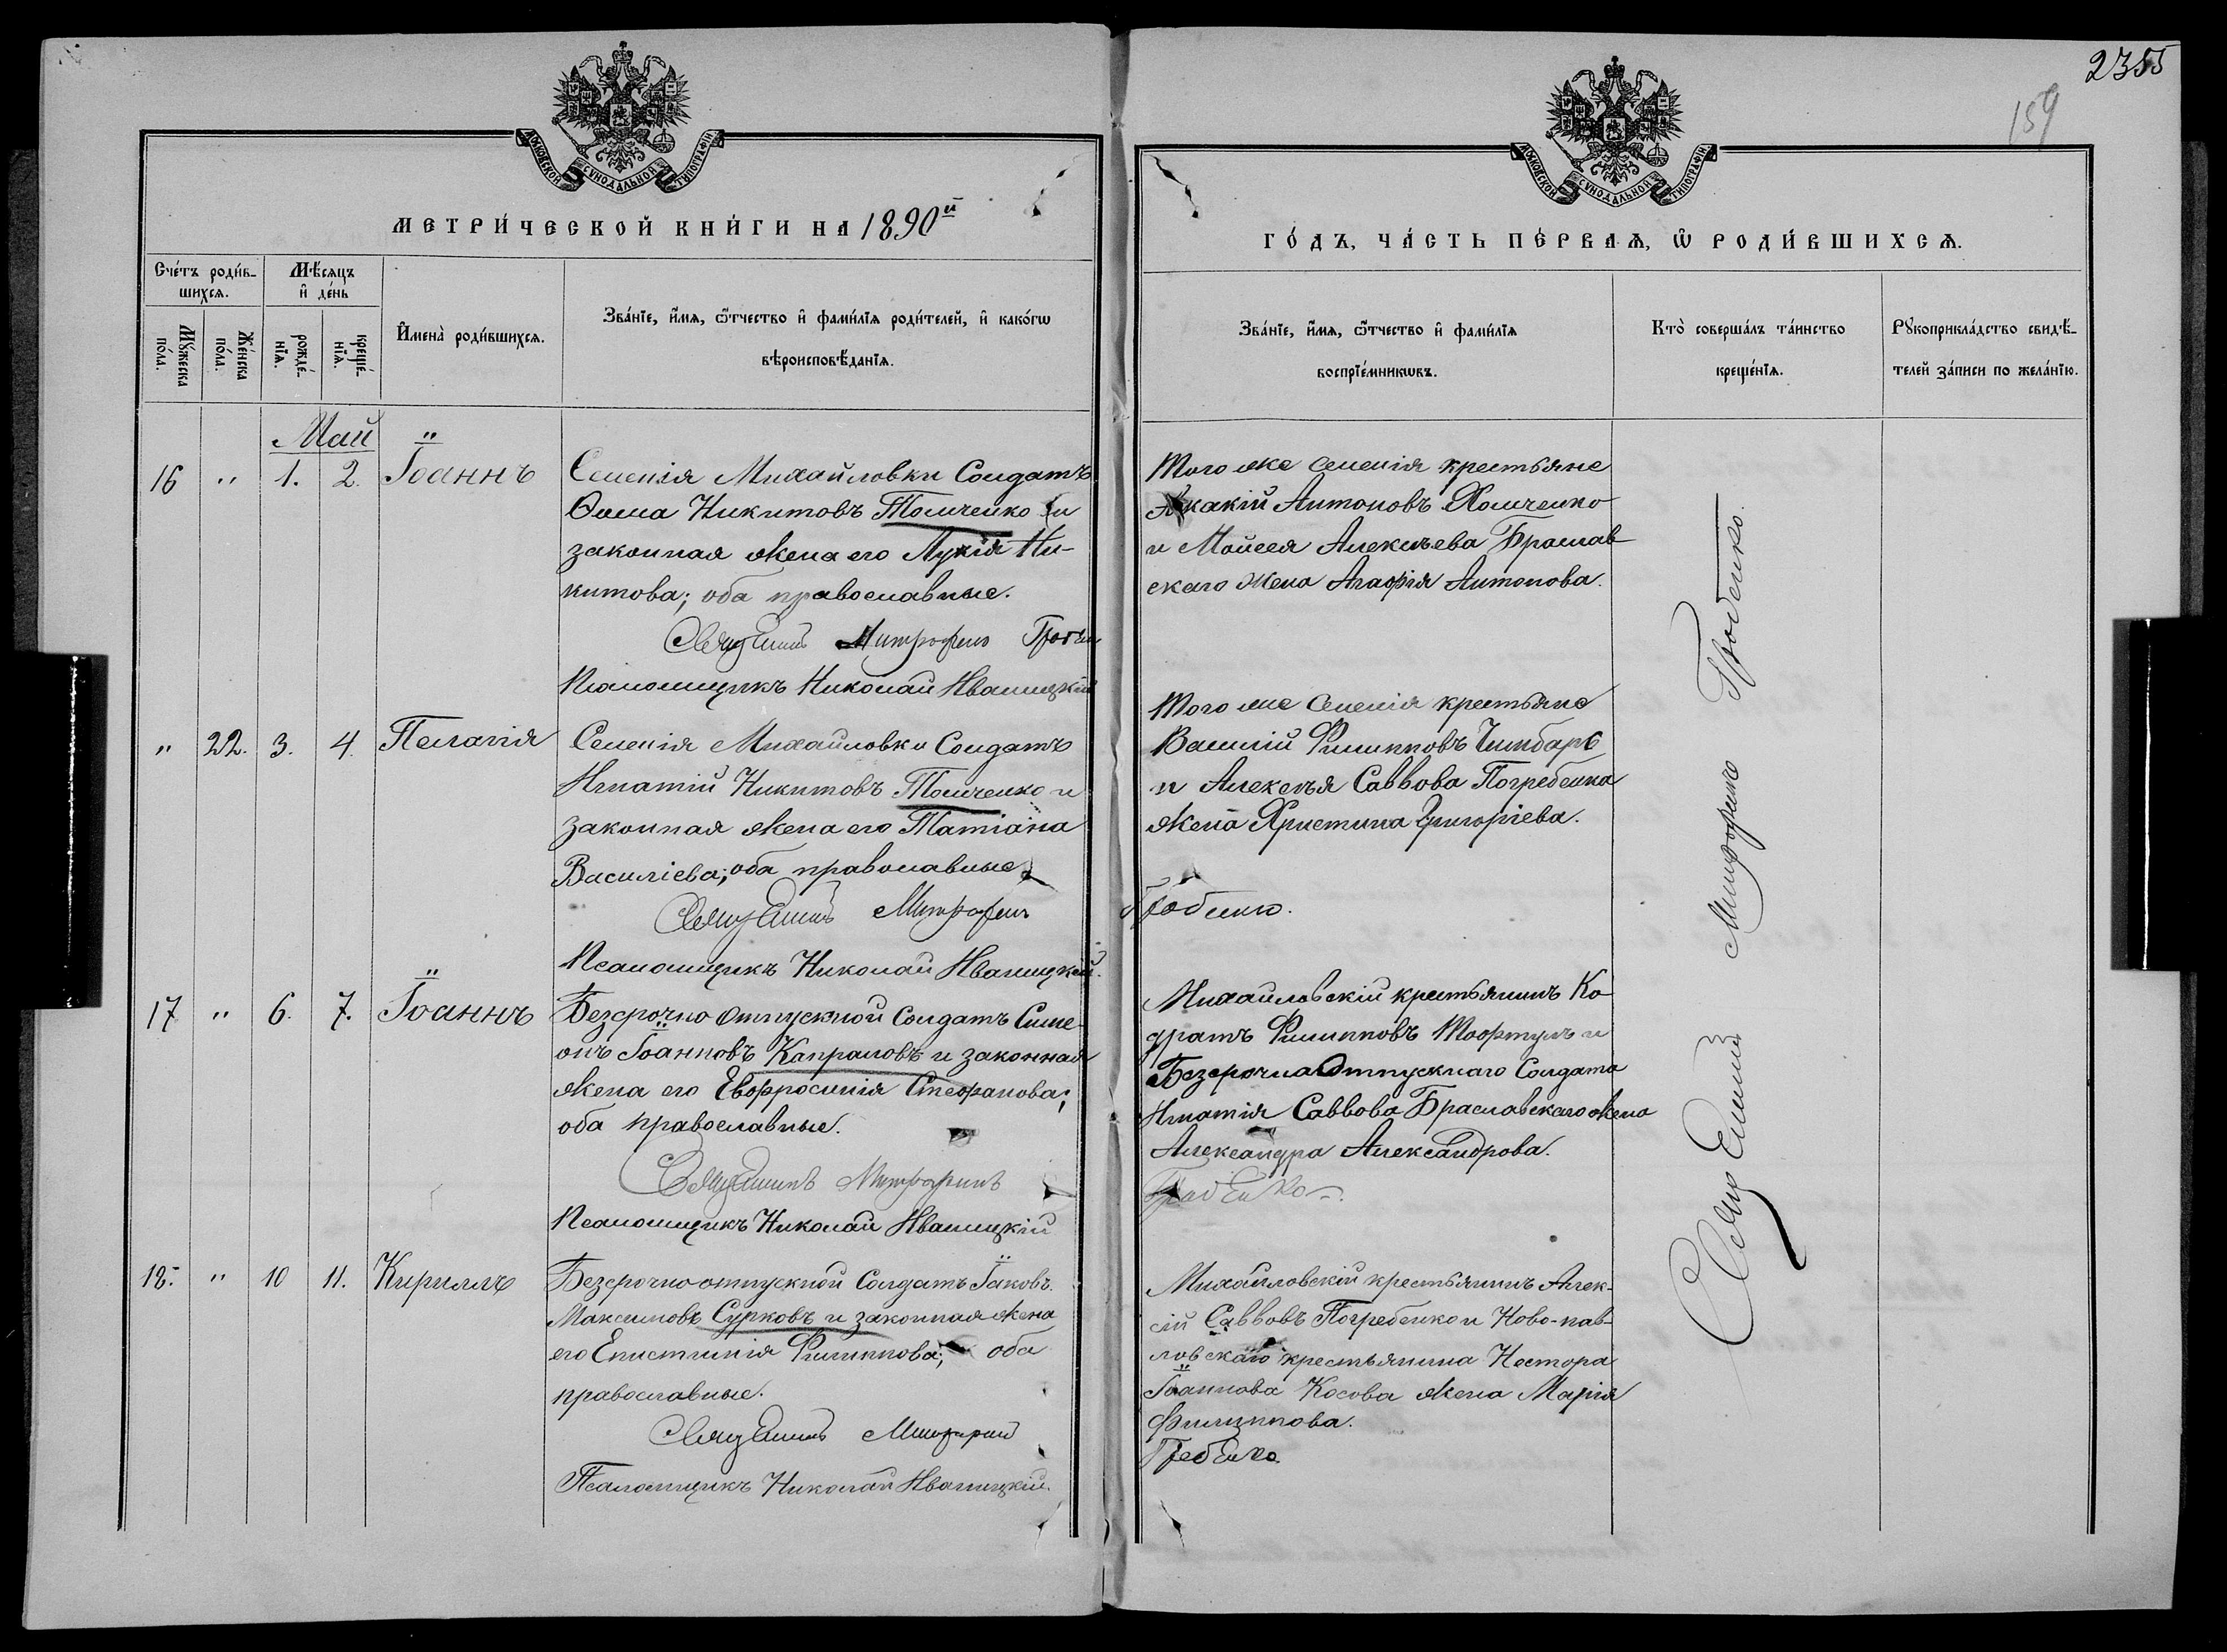 2355
159
МОСКОВСКОЙ СѴНОДАЛЬНОЙ ТИПОГРАФІИ
МОСКОВСКОЙ СѴНОДАЛЬНОЙ ТИПОГРАФІИ
МЕТРИ́ЧЕСКОЙ КНИ́ГИ НА 1890й
ГО́ДЪ, ЧА́СТЬ ПЕ́РВАѦ, Ѽ РОДИ́ВШИХСѦ.
Счéтъ роди́в-
шихсѧ.
Мѣ́сѧцъ
и҆ дéнь
Мꙋ́жеска
по́ла.
Жéнска
по́ла.
рождé-
нїѧ.
крещé-
нїѧ.
И҆мена̀ роди́вшихсѧ.
Звáнїе, и҆́мѧ, ѻ҆́тчество и҆ фами́лїѧ роди́телей, и҆ како́гѡ
вѣроисповѣ́данїѧ.
Звáнїе, и҆́мѧ, ѻ҆́тчество и҆ фами́лїѧ
воспрїéмникѡвъ.
Кто̀ совершáлъ тáинство
крещéнїѧ.
Рꙋкоприклáдство свидѣ́-
телей зáписи по желáнїю.
Май
16 " 1. 2. Іоаннъ
Селенія Михайловки Солдатъ
Ѳома Никитовъ Толиченко и
законная жена его Лукія Ни-
китова; оба православные.
Священникъ Митрофанъ
Псаломщикъ Николай Иваницкій
Того же селенія крестьяне
Акакій Антоновъ Холиченко
и Моисея Алексѣева Браслав
скаго жена Агафія Антонова.
" 22. 3. 4. Пелагія
Селенія Михайловки Солдатъ
Игнатій Никитовъ Толиченко и
законная жена его Татіана
Василіева; оба православные
Священникъ Митрофанъ
Псаломщикъ Николай Иваницкій.
Того же селенія крестьяне
Василій Филипповъ Чимбарь
и Алексѣя Саввова Погребенка
жена Христина Григоріева.
17 " 6. 7. Іоаннъ
Безсрочно отпускной Солдатъ Симе-
онъ Іоанновъ Капраловъ и законная
жена его Евфросинія Стефанова;
оба православные.
Священникъ Митрофанъ
Псаломщикъ Николай Иваницкій
Михайловскій крестьянинъ Ко
дратъ Филипповъ и
Безсрочно Отпускнаго Солдата
Игнатія Саввова Браславскаго жена
Александра Александрова.
18. " 10 11. Кириллъ
Безсрочно отпускной Солдатъ Іаковъ
Максимовъ Сурковъ и законная жена
его Епистимія Филиппова; оба
православные.
Священникъ Митрофанъ
Псаломщикъ Николай Иваницкій.
Михайловскій крестьянинъ Алек-
сій Саввовъ Погребенко и Ново-пав-
ловскаго крестьянина Нестора
Іоаннова Косова жена Марія
Филиппова.
Священникъ Митрофанъ